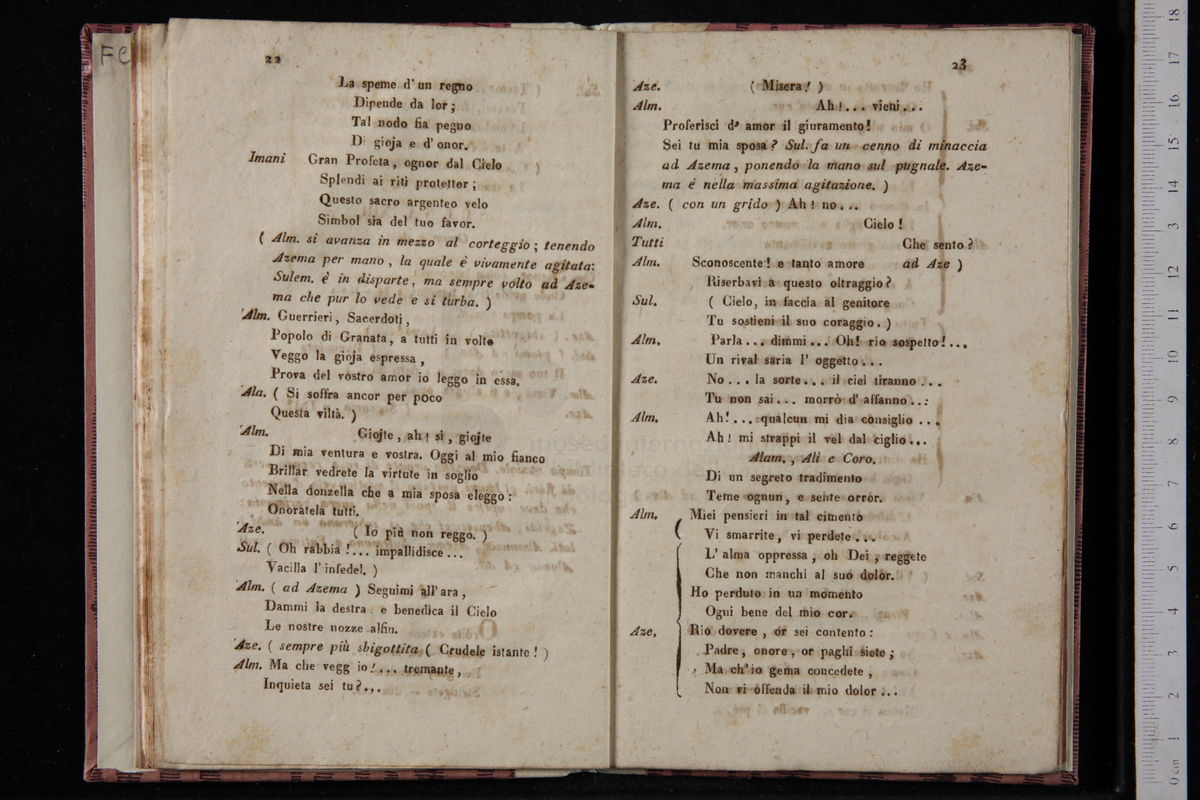 FC
22
La speme d' un regno
Dipende da lor;
Tal nodo fia pegno
Di gioja e d' onor.
Imani Gran Profeta, ognor dal Cielo
Splendi ai riti protettor;
Questo sacro argenteo velo
Simbol sia del tuo favor.
( Alm. si avanza in mezzo al corteggio; tenendo
Azema per mano, la quale è vivamente agitata:
Sulem. è in disparte, ma sempre volto ad Aze-
ma che pur lo vede e si turba. )
Alm. Guerrieri, Sacerdoti,
Popolo di Granata, a tutti in volto
Veggo la gioja espressa,
Prova del vostro amor io leggo in essa.
Ala. ( Si soffra ancor per poco
Questa viltà. )
Alm. Giojte, ah! sì, giojte
Di mia ventura e vostra. Oggi al mio fianco
Brillar vedrete la virtute in soglio
Nella donzella che a mia sposa eleggo:
Onoratela tutti.
Aze. ( Io più non reggo. )
Sul. ( Oh rabbia !... impallidisce...
Vacilla l' infedel. )
Alm. ( ad Azema ) Seguimi all' ara,
Dammi la destra e benedica il Cielo
Le nostre nozze alfin.
Aze. ( sempre più sbigottita ( Crudele istante! )
Alm. Ma che vegg io!... tremante,
Inquieta sei tu?...
23
Aze. ( Misera! )
Alm. Ah!... vieni...
Proferisci d' amor il giuramento!
Sei tu mia sposa? Sul. fa un cenno di minaccia
ad Azema, ponendo la mano sul pugnale. Aze-
ma è nella massima agitazione. )
Aze. ( con un grido ) Ah! no...
Alm. Cielo!
Tutti Che sento?
Alm. Sconoscente! e tanto amore ad Aze )
Riserbavi a questo oltraggio?
Sul. ( Cielo, in faccia al genitore
Tu sostieni il suo coraggio. )
Alm. Parla... dimmi... Oh! rio sospetto!...
Un rival saria l' oggetto...
Aze. No... la sorte... il ciel tiranno...
Tu non sai... morrò d' affanno..:
Alm. Ah!... qualcun mi dia consiglio...
Ah! mi strappi il vel dal ciglio...
Alam., Alì e Coro.
Di un segreto tradimento
Teme ognun, e sente orror.
Alm. Miei pensieri in tal cimento
Vi smarrite, vi perdete...
L' alma oppressa, oh Dei, reggete
Che non manchi al suo dolor.
Ho perduto in un momento
Ogni bene del mio cor.
Aze. Rio dovere, or sei contento:
Padre, onore, or paghi siete;
Ma ch' io gema concedete,
Non vi offenda il mio dolor...
0 cm 1 2 3 4 5 6 7 8 9 10 11 12 13 14 15 16 17 18